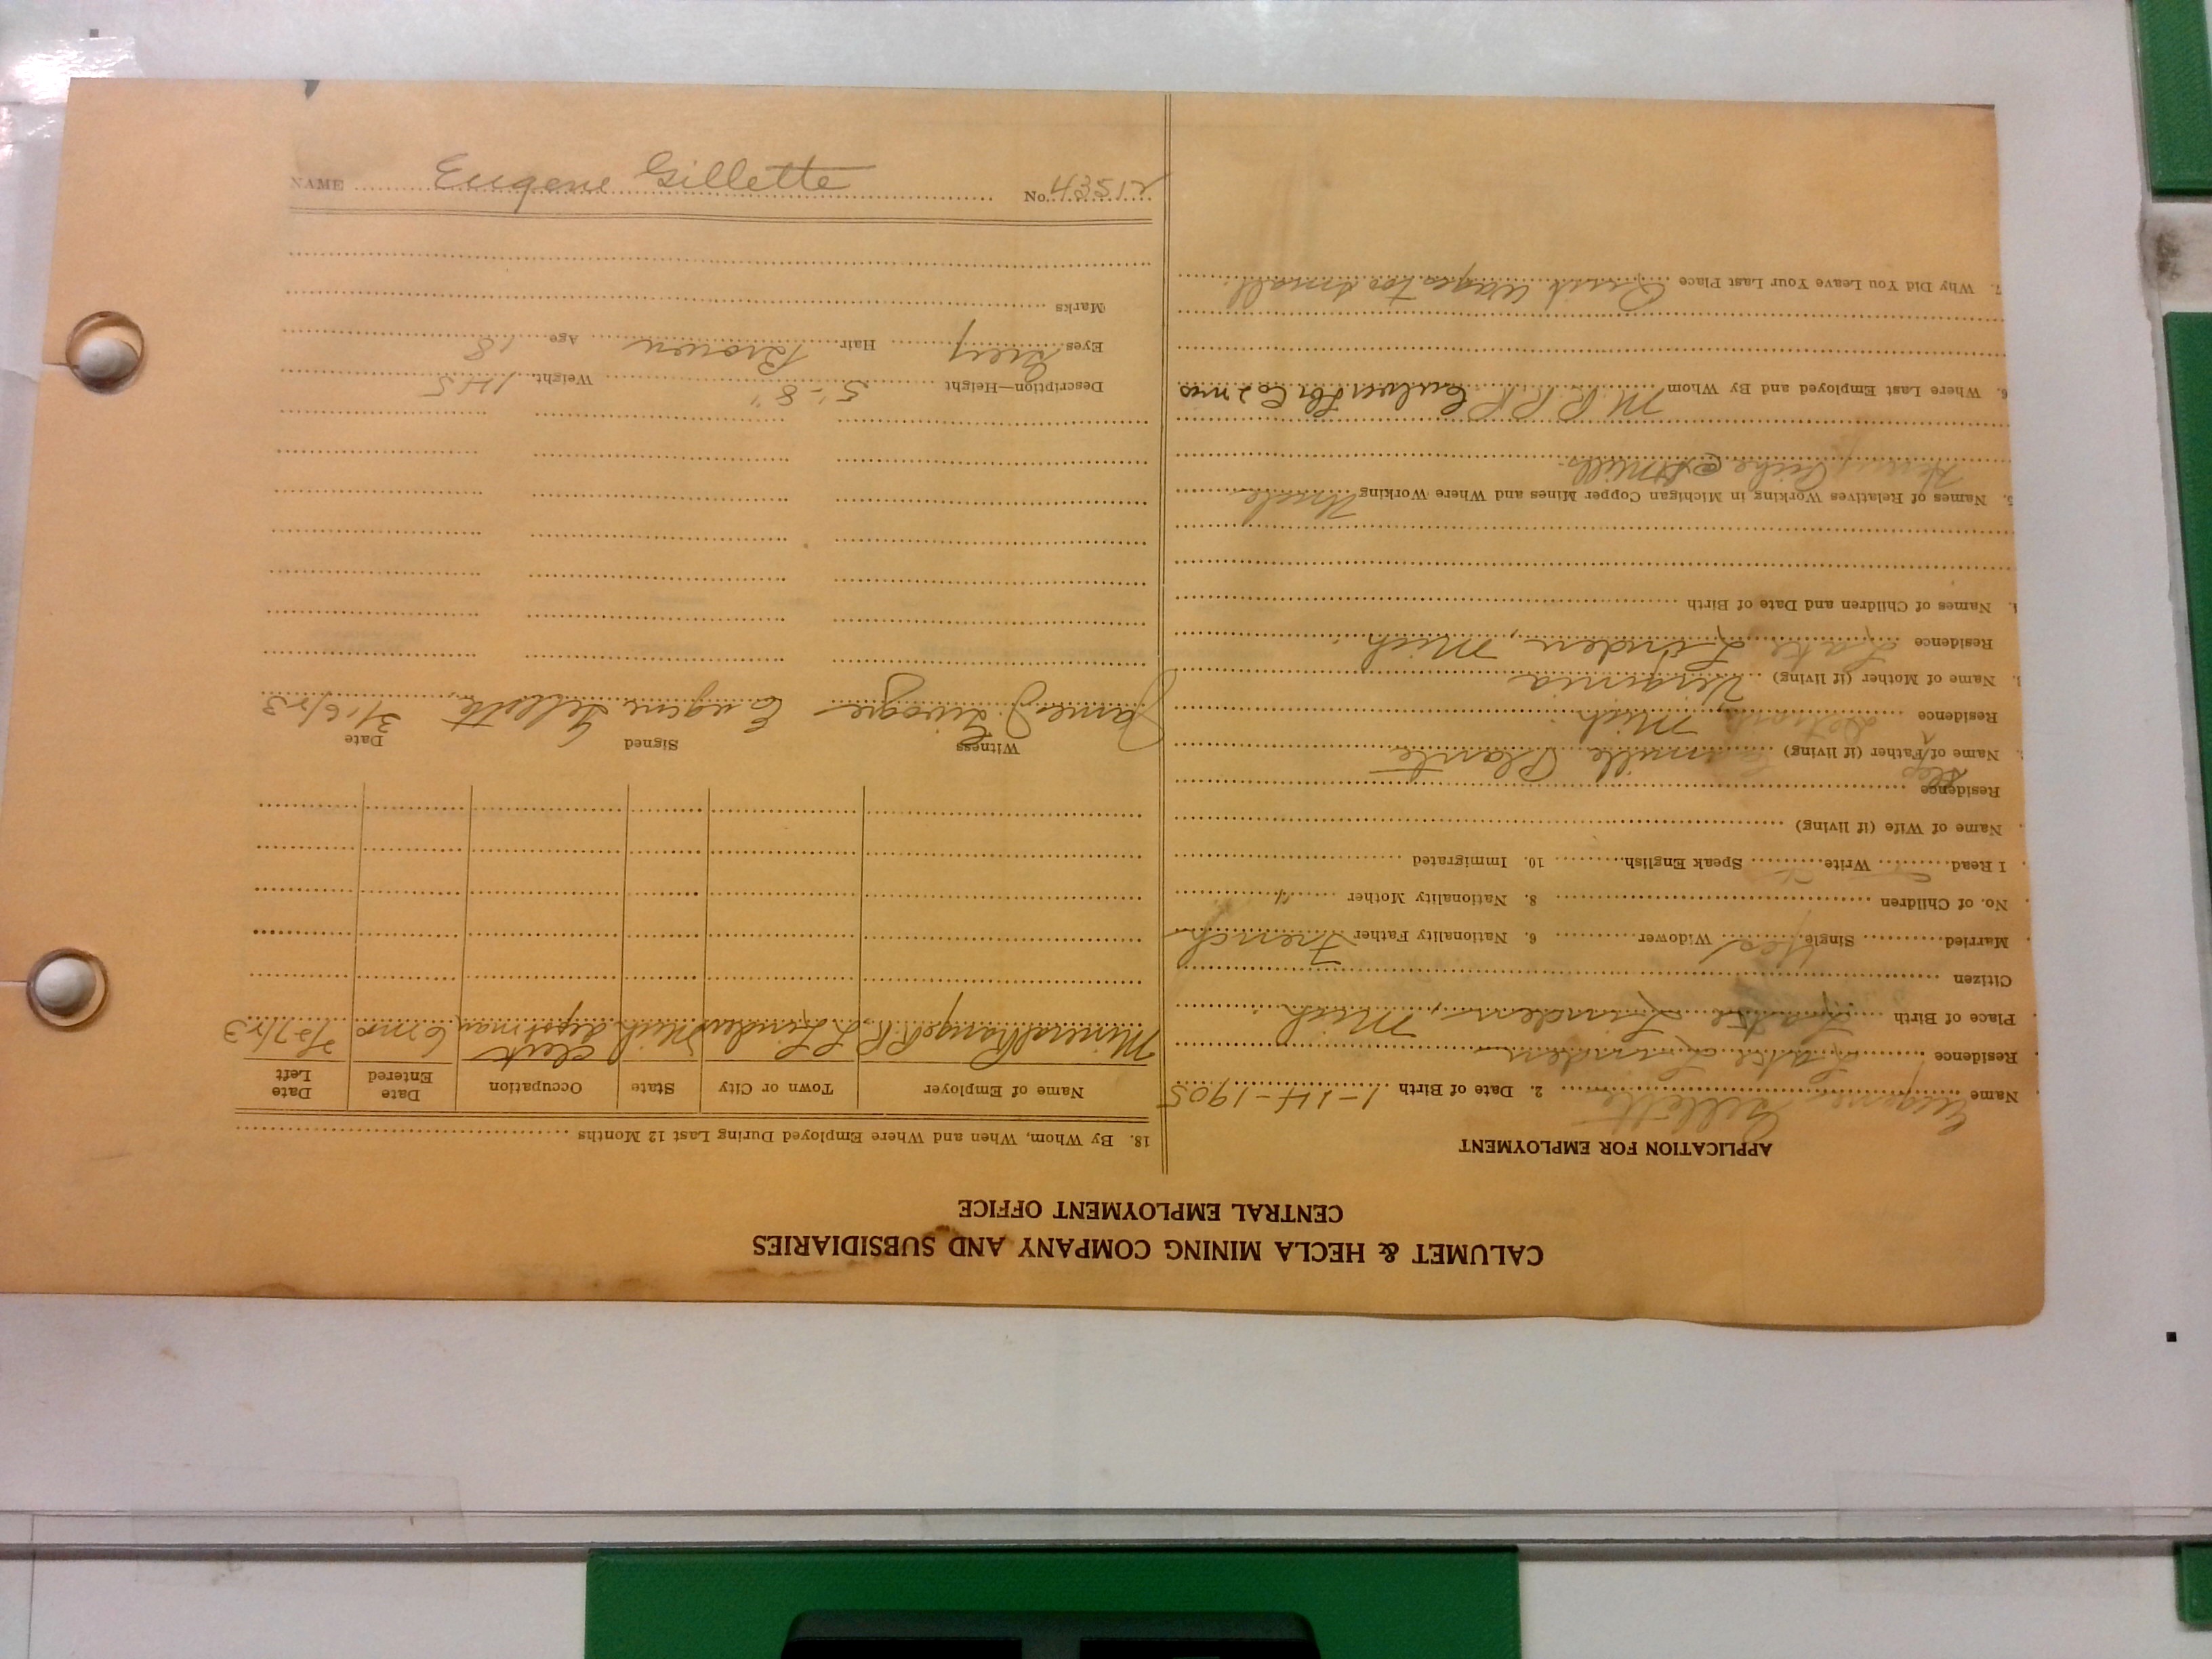 CALUMET & HECLA MINING COMPANY AND SUBSIDIARIES
CENTRAL EMPLOYMENT OFFICE
APPLICATION FOR EMPLOYMENT
Name Eugene Gillette 2. Date of Birth 1-14-1905
Residence Lake Linden
Place of Birth Lake Linden, Mich
Citizen
Married Single Yes Widower 6. Nationality Father French
No. of Children 8. Nationality Mother "
I Read Write Speak English 10. Immigrated
Name of Wife (if living)
Residence
Name of Step Father (if living) Camille Plante
Residence Detroit Mich
Name of Mother (if living) Virginia
Residence Lake Linden, Mich.
Names of Children and Date of Birth
5. Names of Relatives Working in Michigan Copper Mines and Where Working Uncle
Henry Piche @ Mills.
6. Where Last Employed and By Whom M.R.R.R. Co 2 mos
7. Why Did You Leave Your Last Place Quit Wages too small.
18. By Whom, When and Where Employed During Last 12 Months
Name of Employer Town or City State Occupation Date Entered Date Left
Mineral Range R.R. L. Linden Mich clerk 6 mos
Witness Signed Date
James Eugene Gillette 3/16/23
Description—Height 5'-8" Weight 145
Eyes Grey Hair Brown Age 18
Marks
NAME Eugene Gillette No. 43512